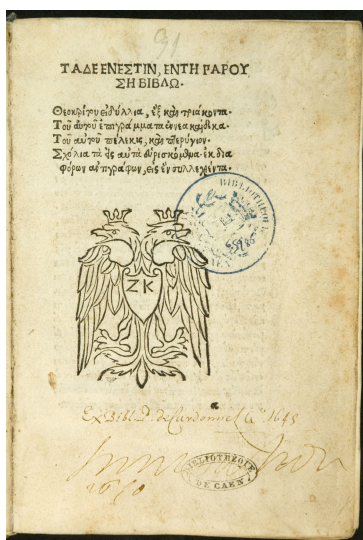 ΤΑΔΕ ΕΝΕΣΤΙΝ, ΕΝ ΤΗ ΠΑΡΟΥ
ΣΗ ΒΙΒΛΩ.
Θεοκρίτου εἰδύλλια, ἓξ καὶ τριάκοντα.
Τοῦ αὐτοῦ ἐπιγράμματα ἐννεακαίδεκα.
Τοῦ αὐτοῦ πέλεκις, καὶ πτερύγιον.
Σχόλια τὰ εἰς αὐτὰ εὑρισκόμενα ἐκ δια
φόρων ἀντιγράφων, εἰς ἓν συλλεχθέντα.
BIBLIOTHECA
ZK
Ex Bibl. de Cardonnel 1645
BIBLIOTHÈQUE
DE CAEN